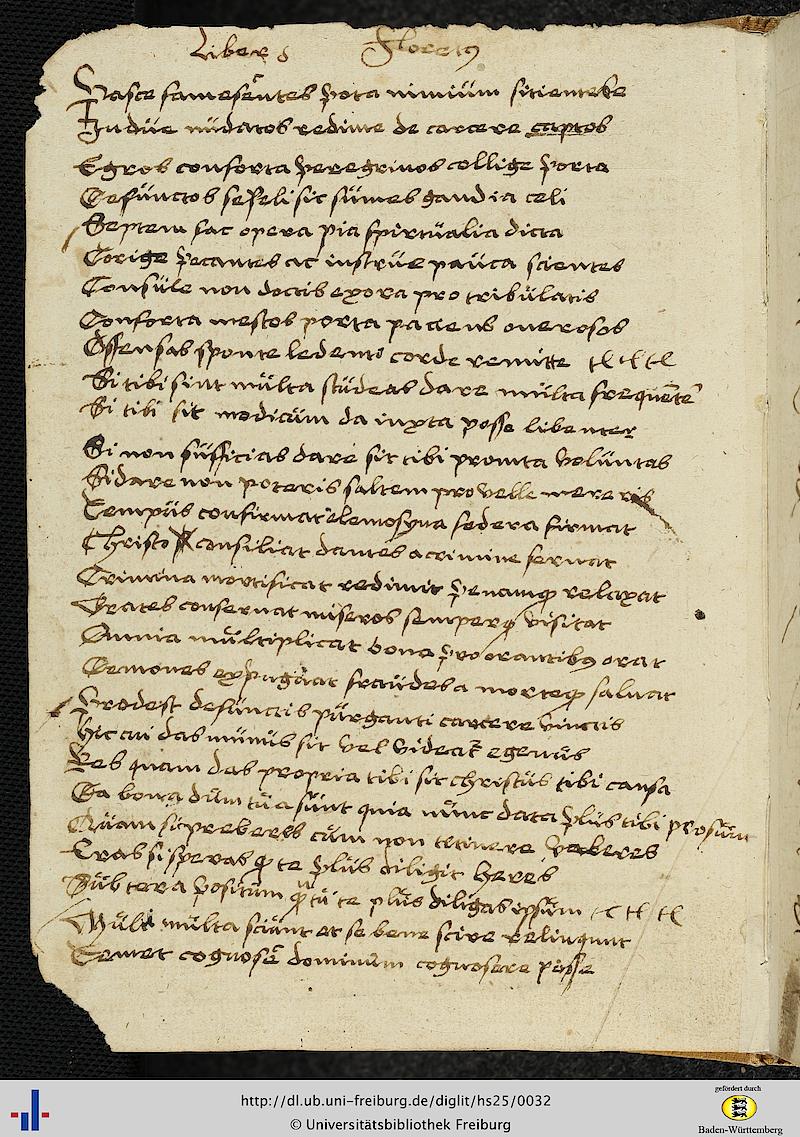 Liber 8 Floretq
Pasce famesentes pota nimium sitientese
Indue nudatos redime de carcere captos
Egros conforta peregrinos collige porta
Defunctos sepeli sic sumes gaudia celi
Septem fac opera pia spiritualia dicta
Corige pecantes ac instrue pauca scientes
Consule non doctis exora pro tribulatis
Conforta mestos porta paciens onerosos
Offensas sponte ledento corde remitte
Si tibi sint multa studeas dare multa frequente
Si tibi sit modicum da iuxta posse libenter
Si non sufficias dare sit tibi promta voluntas
Si dare non poteris saltem pro velle mereris
Tempus confirmat elemosyna federa firmat
Christo consiliat dantes a crimine seruat
Crimina mortificat redimit penamq relaxat
Grates conseruat miseros semperq visitat
Omnia multiplicat bona pro orantibq orat
Demones expugnat fraudes a morteq saluat
Prodest defunctis purganti carcere vinctis
Hic cui das munus sit vel videat egenus
Res quam das propria tibi sit christus tibi causa
Da bona dum tua sunt quia nunc data plus tibi prosunt
Quam si preberes cum non retinere valeres
Eras si speras q te plus diligit heres
Sub tera positum q tu te plus diligas ipsum
Multi multa sciunt et se bene scire relinqunt
Temet cognosse dominum cognoscere posse
http://dl.ub.uni-freiburg.de/diglit/hs25/0032
© Universitätsbibliothek Freiburg
gefördert durch
Baden-Württemberg